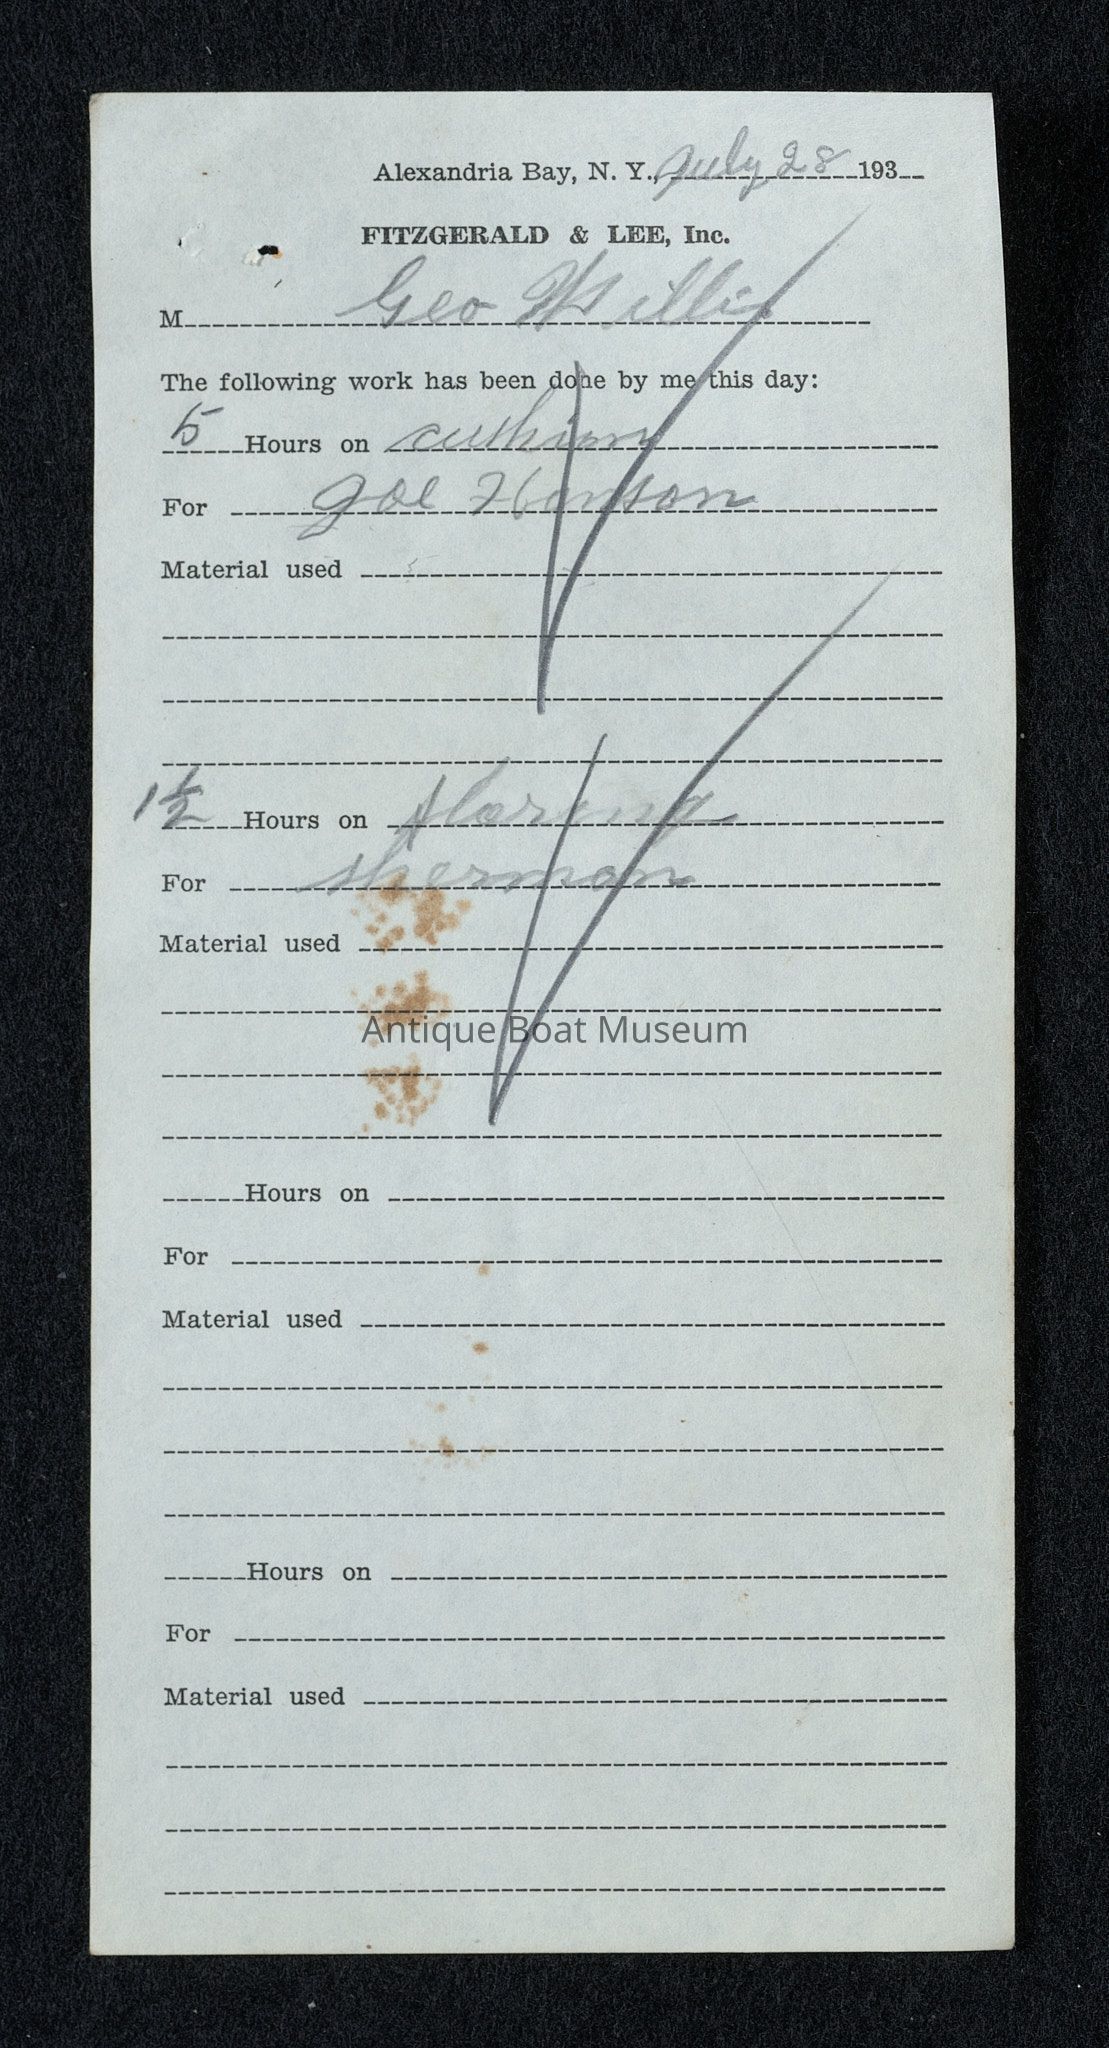 Alexandria Bay, N. Y., July 28 193
FITZGERALD & LEE, Inc.
M Geo Willis
The following work has been done by me this day:
5 Hours on cushions
For Joe Hanson
Material used
1½ Hours on
For Sherman
Material used
Antique Boat Museum
Hours on
For
Material used
Hours on
For
Material used